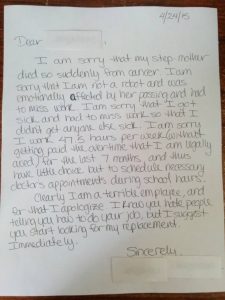 4/24/15
Dear
I am sorry that my step mother
died so suddenly from cancer. I am
sorry that I am not a robot and was
emotionally affected by her passing and had
to miss work. I am sorry that I got
sick and had to miss work so that I
didn't get anyone else sick. I am sorry
I work 47.5 hours per week (without
getting paid the overtime that I am legally
owed) for the last 7 months, and thus
have little choice but to schedule necessary
doctor's appointments during school hours.
Clearly I am a terrible employee, and
for that I apologize. I know you hate people
telling you how to do your job, but I suggest
you start looking for my replacement.
Immediately.
Sincerely,